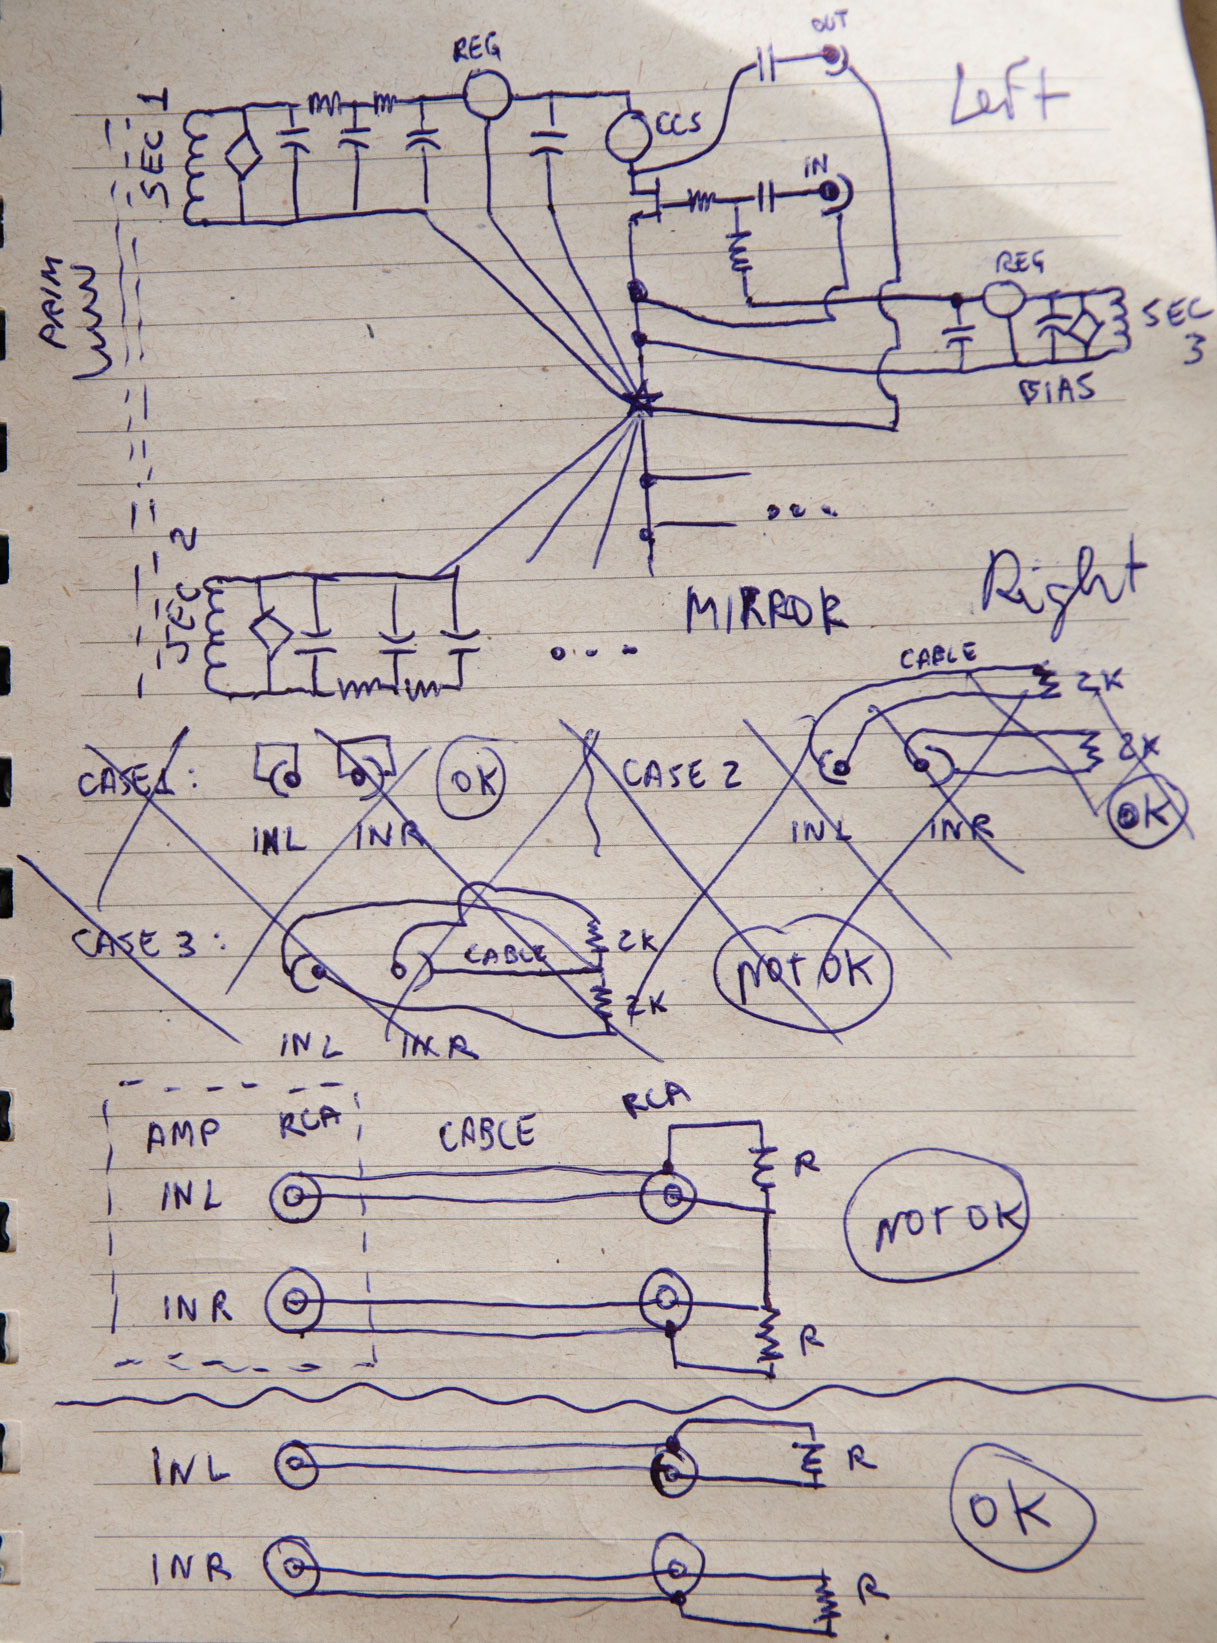 OUT
REG
Left
SEC 1
CCS
IN
PRIM
REG
SEC
3
BIAS
SEC 2
MIRROR
Right
CABLE
2K
CASE 1:
OK
CASE 2
2K
OK
INL
INR
INL
INR
CASE 3:
CABLE
2K
NOT OK
2K
INL
INR
AMP
RCA
CABLE
RCA
INL
R
NOT OK
INR
R
INL
R
OK
INR
R